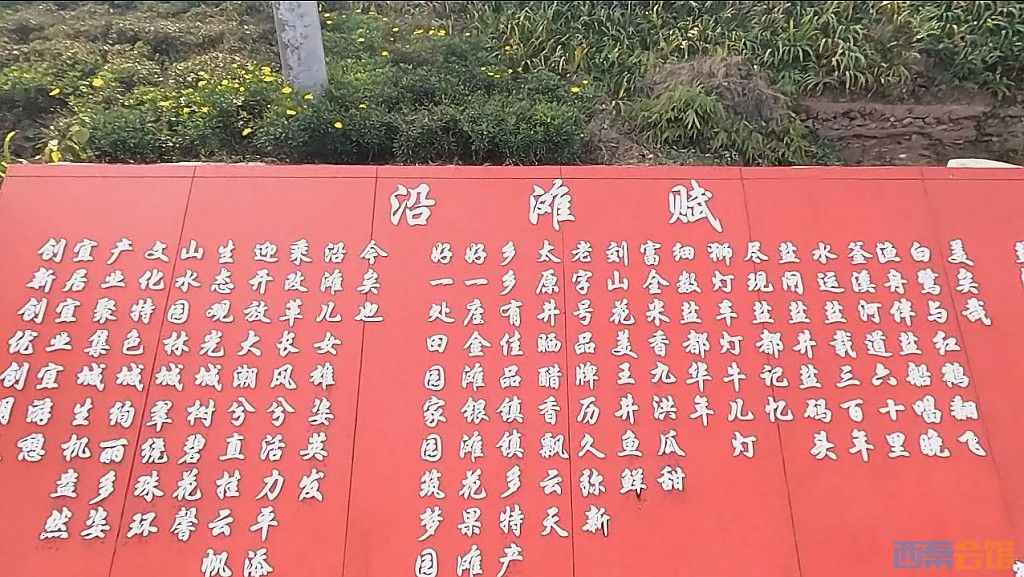 沿滩赋
美矣哉
白鹭与红鹤翻飞
渔舟伴盐船唱晚
釜溪河道六十里
水运盐载三百年
盐闸盐井盐码头
尽现盐都记忆
狮灯车灯牛儿灯
细数盐都华年
富全米香九洪瓜甜
刘山花美王井鱼鲜
老字号品牌历久弥新
太原井晒醋香飘云天
乡乡有佳品镇镇多特产
好一座金滩银滩花果滩
好一处田园家园筑梦园
今矣也
沿滩儿女雄姿英发
乘改革长风兮活力平添
迎开放大潮兮直挂云帆
生态观光城树碧花馨
山水园林城翠绕珠环
文化特色城绚丽多姿
产业聚集城生机盎然
宜居宜业宜游憩
创新创优创
西秦会馆